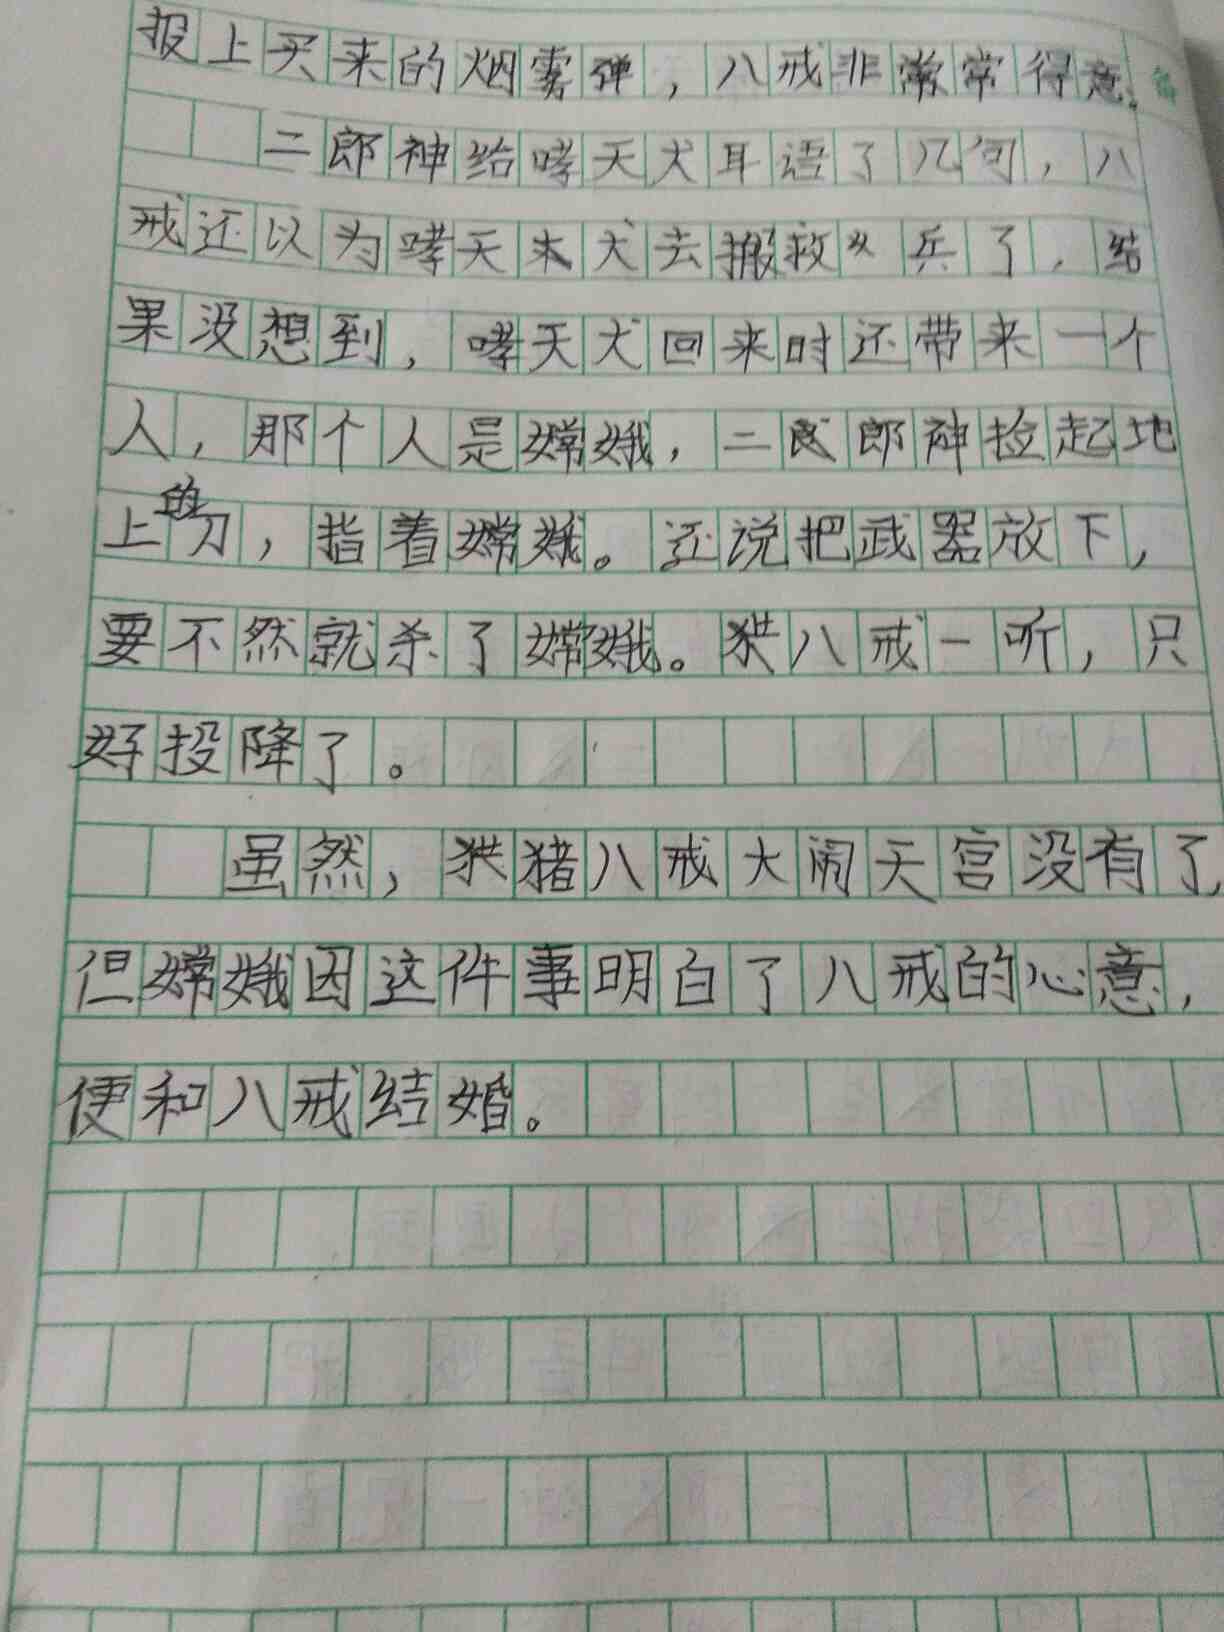 报上买来的烟雾弹，八戒非常得意。
二郎神给哮天犬耳语了几句，八
戒还以为哮天犬去搬救兵了，结
果没想到，哮天犬回来时还带来一个
人，那个人是嫦娥，二郎神捡起地
上的刀，指着嫦娥。还说把武器放下，
要不然就杀了嫦娥。八戒一听，只
好投降了。
虽然，猪八戒大闹天宫没有了，
但嫦娥因这件事明白了八戒的心意，
便和八戒结婚。